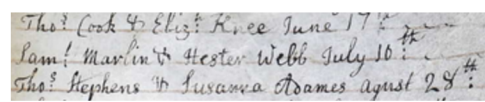 Tho.s Cook & Eliz.h Knee June 17th
Sam.l Marlin & Hester Webb July 10th
Tho.s Stephens & Susanna Adames Agust 28th